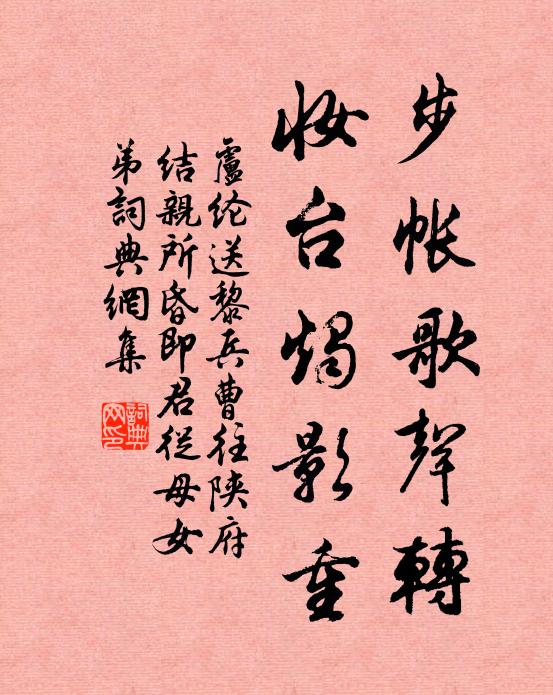 步帐歌聲轉
妝台燭影重
盧纶送黎兵曹往陕府
結親所昏即君從母女
弟詞典網集
詞典网印